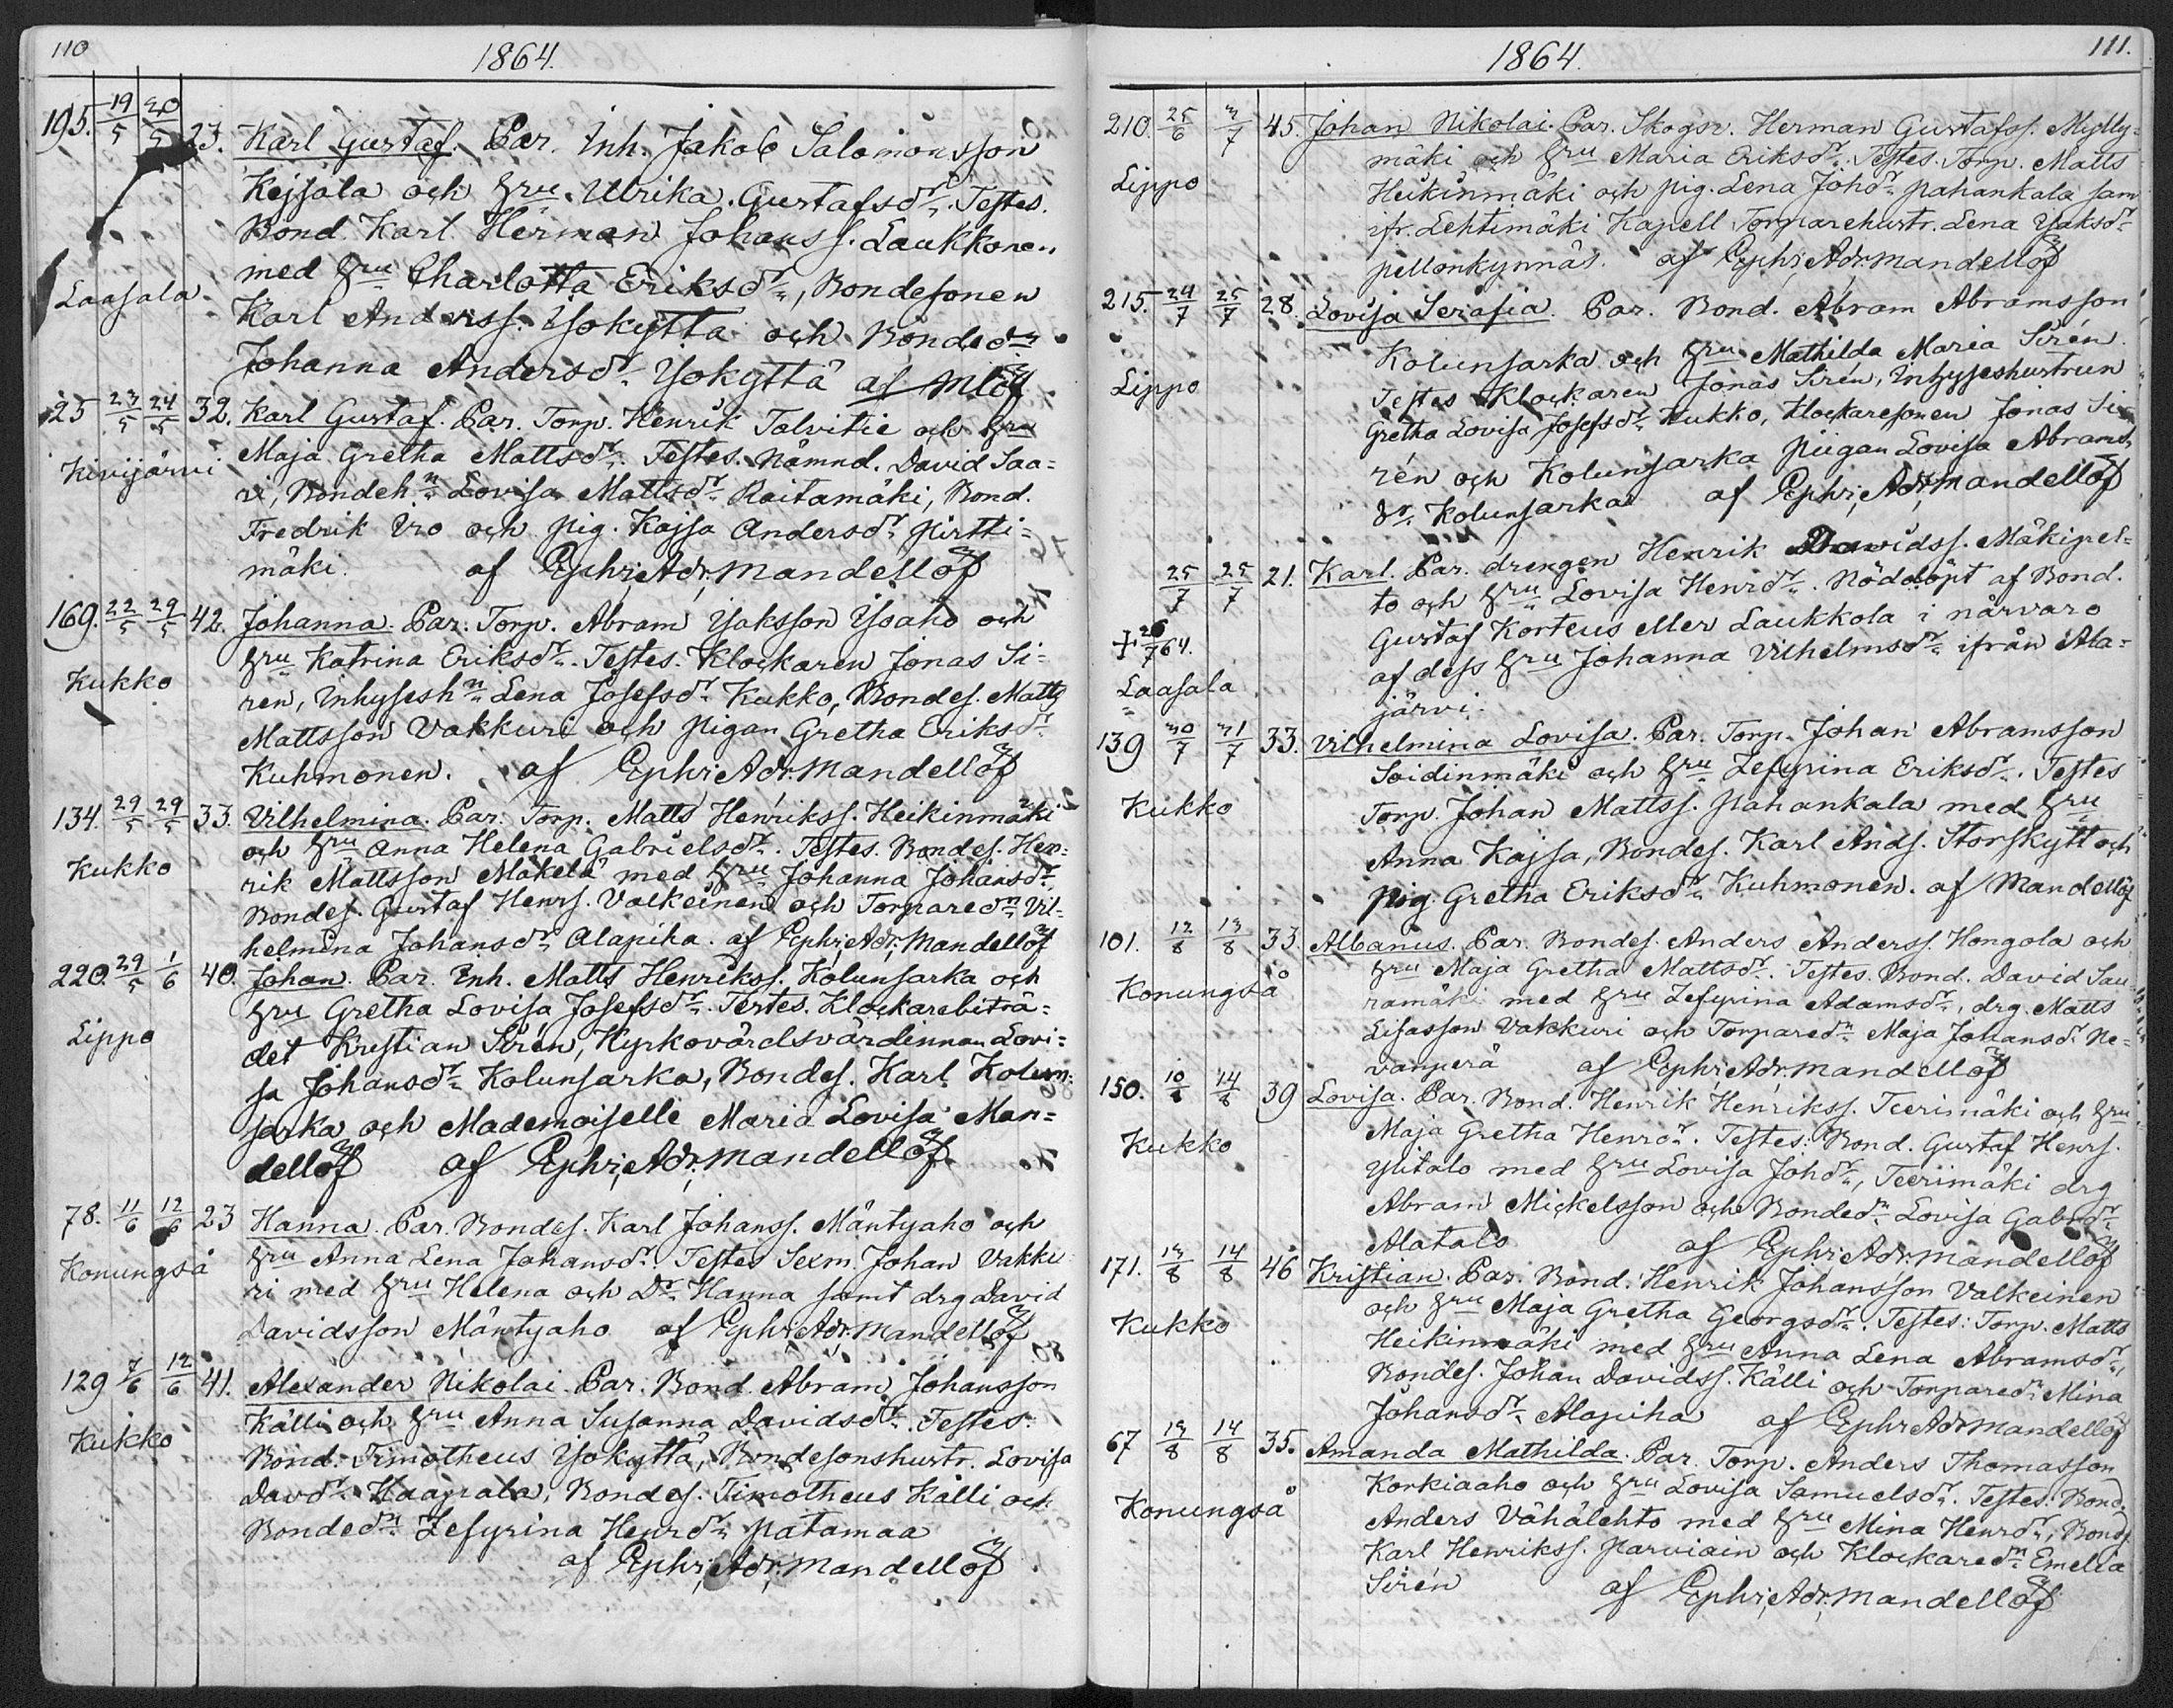 110
1864.
195. 19/5 20/5 23. Karl Gustaf. Par. Inh. Jakob Salomonsson
Kejsala och hru Ulrika Gustafsdr. Testes.
Bond. Karl Herman Johanss. Laukkonen
med hru Charlotta Eriksdr, Bondesonen
Laasala
Karl Anderss. Yokyttä och Bondedn
Johanna Andersdr. Yokyttä af Mlöf
125 23/5 24/5 32. Karl Gustaf. Par. Torp. Henrik Talvitie och hru
Maja Gretha Mattsdr. Testes. Nämnd. David Saa=
Kivijärvi
ri, Bondeh.n Lovisa Mattsdr. Raitamäki, Bond.
Fredrik Iro och pig. Kajsa Andersdr. Pirtti=
mäki. af Ephi; Adj; Mandellöf
169. 22/5 29/5 42. Johanna. Par. Torp. Abram Ysaksson Ysaho och
hru Katrina Eriksdr. Testes. Klockaren Jonas Si=
Kukko
ren, Inhysesh.n Lena Josefsdr. Kukko, Bondes. Matts
Mattsson Vakkuri och pigan Gretha Eriksdr.
Kuhmonen. af Ephi; Adj; Mandellöf
134. 29/5 29/5 33. Vilhelmina. Par. Torp. Matts Henrikss. Heikinmäki
och hru Anna Helena Gabrielsdr. Testes. Bondes. Hen=
Kukko
rik Mattsson Mäkelä med hru Johanna Johansdr.,
Bondes. Gustaf Henrs. Valkeinen och Torparedn. Vil=
helmina Johansdr. Alapiha. af Ephi; Adj; Mandellöf
220. 29/5 1/6 40. Johan. Par. Inh. Matts Henrikss. Kolunsarka och
hru Gretha Lovisa Josefsdr. Testes. Klockarebiträ=
Lippo
det Kristian Sirén, Kyrkovärdsvärdinnan Lovi=
sa Johansdr. Kolunsarka, Bondes. Karl Kolun=
sarka och Mademoiselle Maria Lovisa Man=
dellöf af Ephi; Adj; Mandellöf
78. 11/6 12/6 23 Hanna. Par. Bondes. Karl Johanss. Mäntyaho och
hru Anna Lena Johansdr. Testes Sexm. Johan Vakku
Konungså
ri med hru Helena och Dr. Hanna samt drg David
Davidsson Mäntyaho af Ephi; Adj; Mandellöf
129 7/6 12/6 41. Alexander Nikolai. Par. Bond. Abram Johansson
Källi och hru Anna Susanna Davidsdr. Testes:
Kukko
Bond. Timotheus Yokyttä, Bondesonshustr. Lovisa
Davdr. Haapala, Bondes. Timotheus Källi och
Bondedn. Zefyrina Henrdr. Patamaa
af Ephi; Adj; Mandellöf
111.
1864.
210. 25/6 3/7 45. Johan Nikolai. Par. Skogsv. Herman Gustafss. Mylly=
mäki och hru Maria Eriksdr. Testes. Torp. Matts
Lippo
Heikinmäki och pig. Lena Johdr. Pahankala sam
ifr. Lehtimäki Kapell Torparehustr. Lena Ysaksdr.
Pellonkynnäs. af Ephi; Adj; Mandellöf
215. 24/7 25/7 28. Lovisa Serafia. Par. Bond. Abram Abramsson
Kolunsarka och hru Mathilda Maria Sirén.
Lippo
Testes Klockaren Jonas Sirén, Inhyseshustrun
Gretha Lovisa Josefsdr. Kukko, Klockaresonen Jonas Si=
rén och Kolunsarka pigan Lovisa Abrams
dr. Kolunsarka af Ephi; Adj; Mandellöf
25/7 25/7 21. Karl. Par. drengen Henrik Davidss. Mäkipel=
to och hru Lovisa Henrdr. Nöddöpt af Bond.
† 26/7 64.
Gustaf Korteus eller Laukkola i närvaro
Laasala
af dess hru Johanna Vilhelmsdr. ifrån Ala=
järvi.
139 30/7 31/7 33. Vilhelmina Lovisa. Par. Torp. Johan Abramsson
Soidinmäki och hru Zefyrina Eriksdr. Testes
Kukko
Torp. Johan Mattss. Pahankala med hru
Anna Kajsa, Bondes. Karl Ands. Storskytt och
pig. Gretha Eriksdr. Kuhmonen. af Mandellöf
101. 12/8 13/8 33. Albanus. Par. Bondes. Anders Anderss. Hongola och
hru Maja Gretha Mattsdr. Testes. Bond. David Sau=
Konungså
ramäki med hru Zefyrina Adamsdr., drg. Matts
Lisasson Vakkuri och Torparedn. Maja Johansdr. Ne=
vanperä af Ephi; Adj; Mandellöf
150. 10/8 14/8 39 Lovisa. Par. Bond. Henrik Henrikss. Teerimäki och hru
Maja Gretha Henrdr. Testes: Bond. Gustaf Henrs.
Kukko
Ylitalo med hru Lovisa Johdr., Teerimäki drg
Abram Mickelsson och Bondedn. Lovisa Gabrdr.
Alatalo af Ephi; Adj; Mandellöf
171. 13/8 14/8 46 Kristian. Par. Bond. Henrik Johansson Valkeinen
och hru Maja Gretha Georgsdr. Testes: Torp. Matts
Kukko
Heikinmäki med hru Anna Lena Abramsdr.,
Bondes. Johan Davidss. Källi och Torparedn. Mina
Johansdr. Alapiha af Ephi; Adj; Mandellöf
67 13/8 14/8 35. Amanda Mathilda. Par. Torp. Anders Thomasson
Korkiaaho och hru Lovisa Samuelsdr. Testes: Bond.
Konungså
Anders Vähälehto med hru Mina Henrdr., Bonds.
Karl Henrikss. Parviain och Klockaredn. Emelia
Sirén af Ephi; Adj; Mandellöf